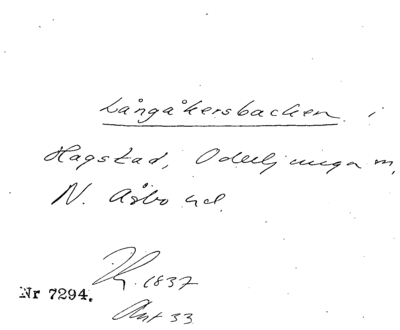 Långåkersbacken i
Hagstad, Oderljunga sn,
N. Åsbo hd.
1837
Nr 7294.
33